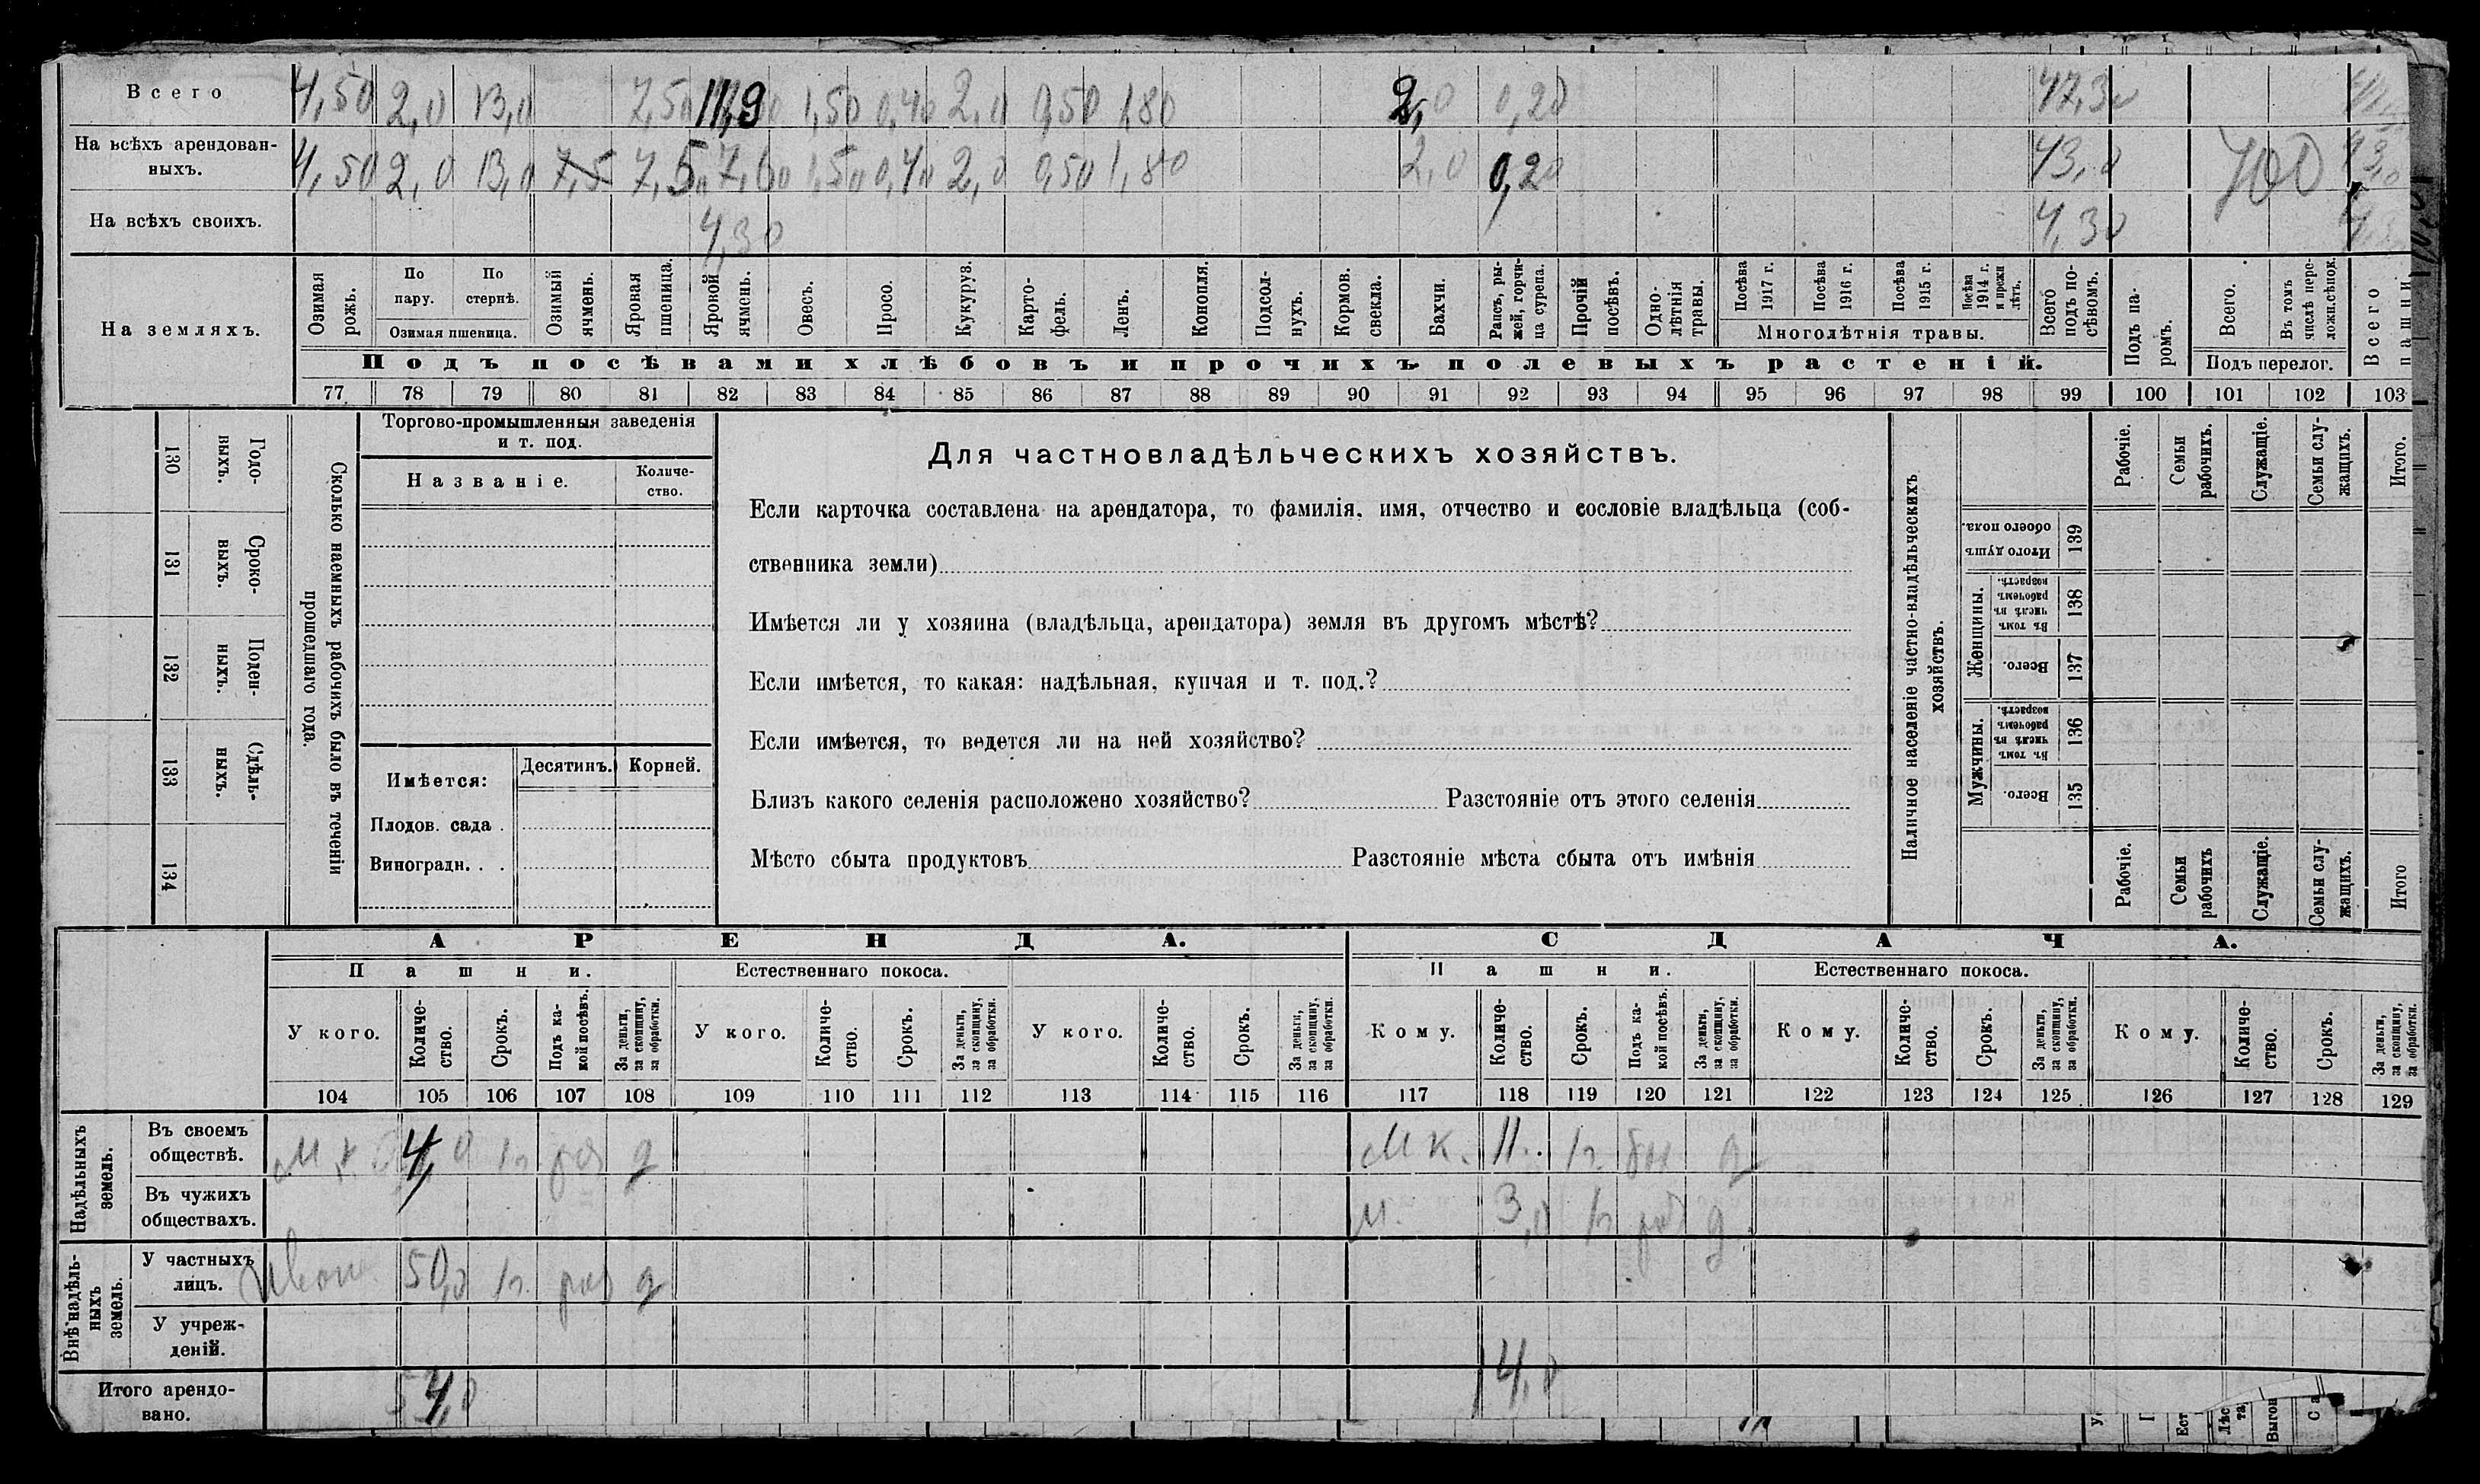 Всего 4,50 2,0 13,0 7,50 11,9 1,50 0,40 2,0 0,50 1,80 2,0 0,20 47,30
На всѣхъ арендован-
ныхъ. 4,50 2,0 13,0 7,5 7,5 7,60 1,50 0,40 2,0 0,50 1,80 2,0 0,20 43,0 43,0
На всѣхъ своихъ. 4,30 4,30
На земляхъ.
Озимая рожь.
По пару.
По стернѣ.
Озимая пшеница.
Озимый ячмень.
Яровая пшеница.
Яровой ячмень.
Овесъ.
Просо.
Кукуруз.
Карто-
фель.
Ленъ.
Конопля.
Подсол-
нухъ.
Кормов. свекла.
Бахчи.
Рапсъ, ры-
жей, горчи-
ца сурепа.
Прочій посѣвъ.
Одно-
лѣтнія травы.
Посѣва 1917 г.
Посѣва 1916 г.
Посѣва 1915 г.
Посѣва 1914 г. и прежн лѣтъ.
Многолѣтнія травы.
Всего подъ по-
сѣвомъ.
Подъ па-
ромъ.
Всего.
Въ томъ числѣ пере-
ложн.сѣнок.
Подъ перелог.
Всего пашни.
Подъ посѣвами хлѣбовъ и прочихъ полевыхъ растеній.
77 78 79 80 81 82 83 84 85 86 87 88 89 90 91 92 93 94 95 96 97 98 99 100 101 102 103
130 Годо-
выхъ.
131 Сроко-
выхъ.
132 Поден-
ныхъ.
133 Сдѣль-
ныхъ.
134
Сколько наемныхъ рабочихъ было въ теченіи
прошедшаго года.
Торгово-промышленныя заведенія
и т. под.
Названіе.
Количе-
ство.
Имѣется:
Десятинъ. Корней.
Плодов. сада .
Виноградн. . .
Для частновладѣльческихъ хозяйствъ.
Если карточка составлена на арендатора, то фамилія, имя, отчество и сословіе владѣльца (соб-
ственника земли)
Имѣется ли у хозяина (владѣльца, арендатора) земля въ другомъ мѣстѣ?
Если имѣется, то какая: надѣльная, купчая и т. под.?
Если имѣется, то ведется ли на ней хозяйство?
Близъ какого селенія расположено хозяйство? Разстояніе отъ этого селенія
Мѣсто сбыта продуктовъ Разстояніе мѣста сбыта отъ имѣнія
Наличное населеніе частно-владѣльческихъ
хозяйствъ.
Рабочіе.
Семьи рабочихъ.
Служащіе.
Семьи слу-
жащихъ.
Итого.
Итого душъ обоего пола. 139
Женщины.
Въ томъ числѣ въ рабочемъ возрастѣ. 138
Всего. 137
Мужчины.
Въ томъ числѣ въ рабочемъ возрастѣ. 136
Всего. 135
Рабочіе.
Семьи рабочихъ
Служащіе.
Семьи слу-
жащихъ.
Итого
АРЕНДА. СДАЧА.
Пашни. Естественнаго покоса. Пашни. Естественнаго покоса.
У кого.
Количе-
ство.
Срокъ.
Подъ ка-
кой посѣвъ.
За деньги, за скопщину, за обработки.
У кого.
Количе-
ство.
Срокъ.
За деньги, за скопщину, за обработки.
У кого.
Количе-
ство.
Срокъ.
За деньги, за скопщину, за обработки.
Кому.
Количе-
ство.
Срокъ.
Подъ ка-
кой посѣвъ.
За деньги, за скопщину, за обработки.
Кому.
Количе-
ство.
Срокъ.
За деньги, за скопщину, за обработки.
Кому.
Количе-
ство.
Срокъ.
За деньги, за скопщину, за обработки.
104 105 106 107 108 109 110 111 112 113 114 115 116 117 118 119 120 121 122 123 124 125 126 127 128 129
Надѣльныхъ земель.
Въ своемъ
обществѣ. 4,0 д Мк. 11. д
Въ чужихъ
обществахъ. 3,0 д
Внѣ надѣль-
ныхъ земель.
У частныхъ
лицъ. 50,0 д
У учреж-
деній.
Итого арендо-
вано. 54,0 14,0